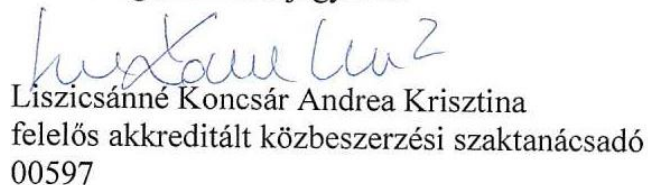 Liszicsánné Koncsár Andrea Krisztina
felelős akkreditált közbeszerzési szaktanácsadó
00597